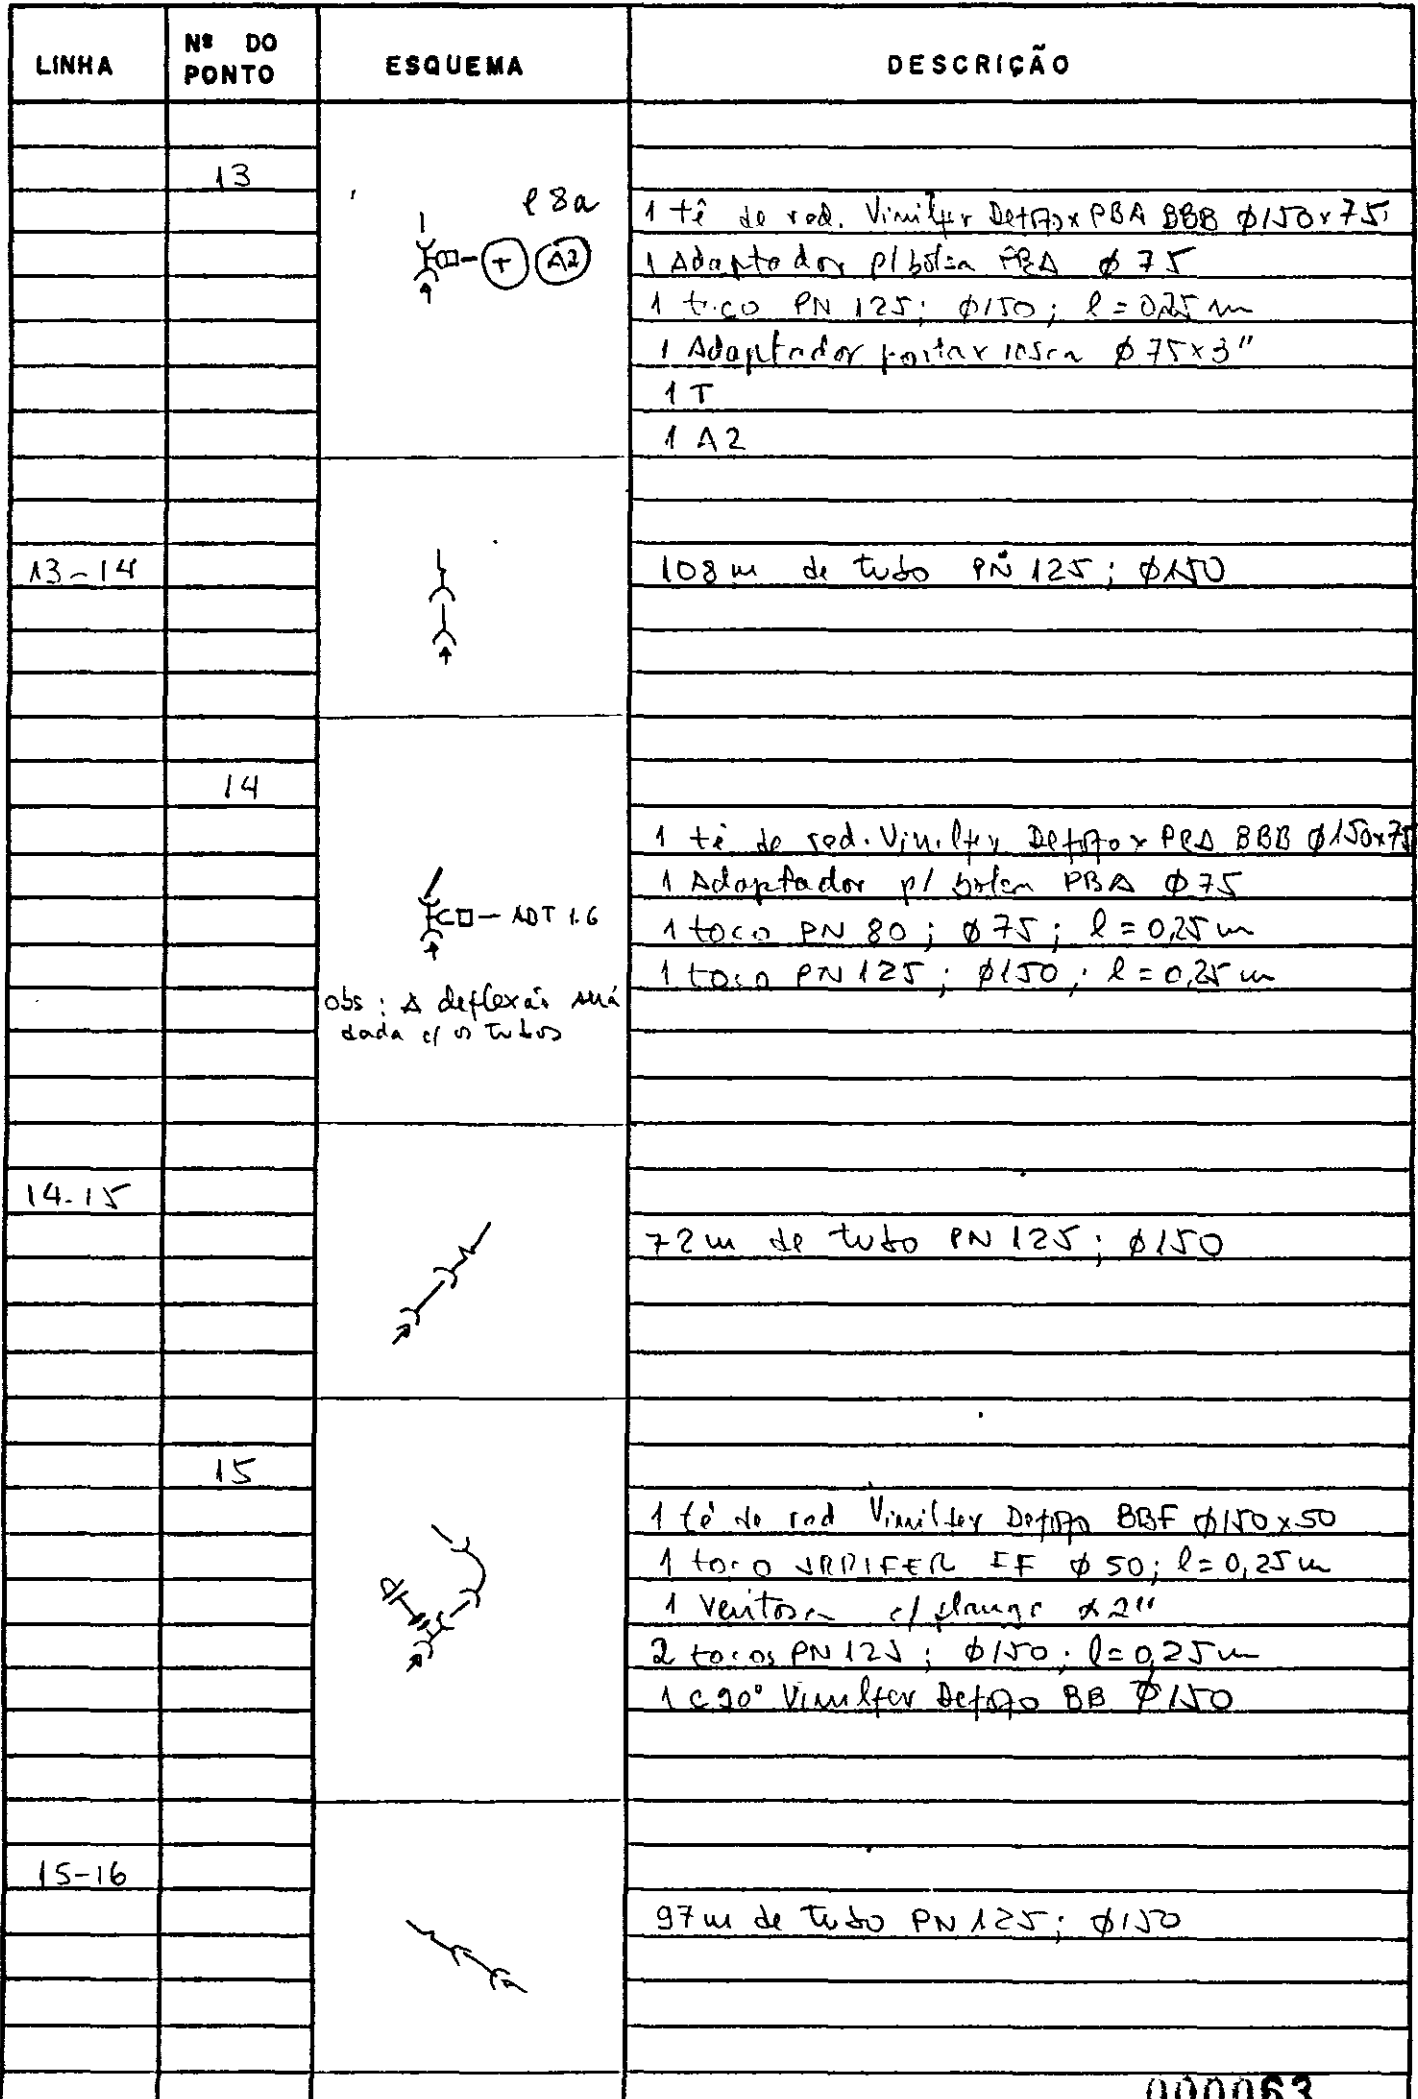 LINHA
Nº DO PONTO
ESQUEMA
DESCRIÇÃO
13
l 8a
T A2
1 tê de red. Vinilfer Defofo x PBA BBB ø150x75
1 Adaptador p/ bolsa PBA ø 75
1 toco PN 125; ø150; l = 0,25 m
1 Adaptador ponta x rosca ø 75x3"
1 T
1 A2
13-14
108 m de tubo PN 125; ø150
14
ADT 1.6
obs: A deflexão será
dada c/ os tubos
1 tê de red. Vinilfer Defofo x PBA BBB ø150x75
1 Adaptador p/ bolsa PBA ø75
1 toco PN 80; ø75; l = 0,25 m
1 toco PN 125; ø150; l = 0,25 m
14-15
72 m de tubo PN 125; ø150
15
1 tê de red Vinilfer Defofo BBF ø150x50
1 toco IRRIFER FF ø 50; l = 0,25 m
1 Ventosa c/ flange 2"
2 tocos PN 125; ø150; l = 0,25 m
1 c 90° Vinilfer Defofo BB ø150
15-16
97 m de tubo PN 125; ø150
000063